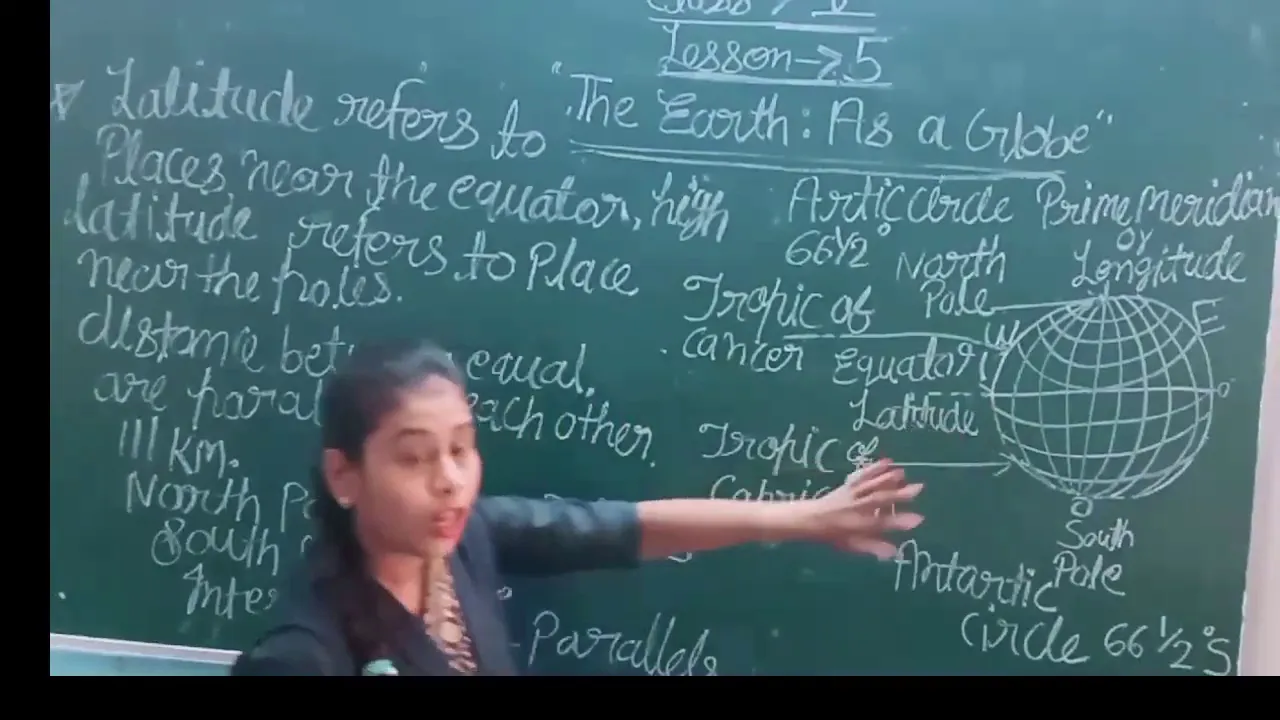 Lesson → 5
"The Earth: As a Globe"
Latitude refers to
Places near the equator, high
latitude refers to Place
near the poles.
distance equal.
are each other.
111 KM.
North
South
Parallels
Artic circle
66 1/2°
Prime Meridian
or
Longitude
North
Pole
Tropic of
cancer
W
E
Equator
Latitude
0°
Tropic of
South
Pole
Antartic
Circle 66 1/2° S